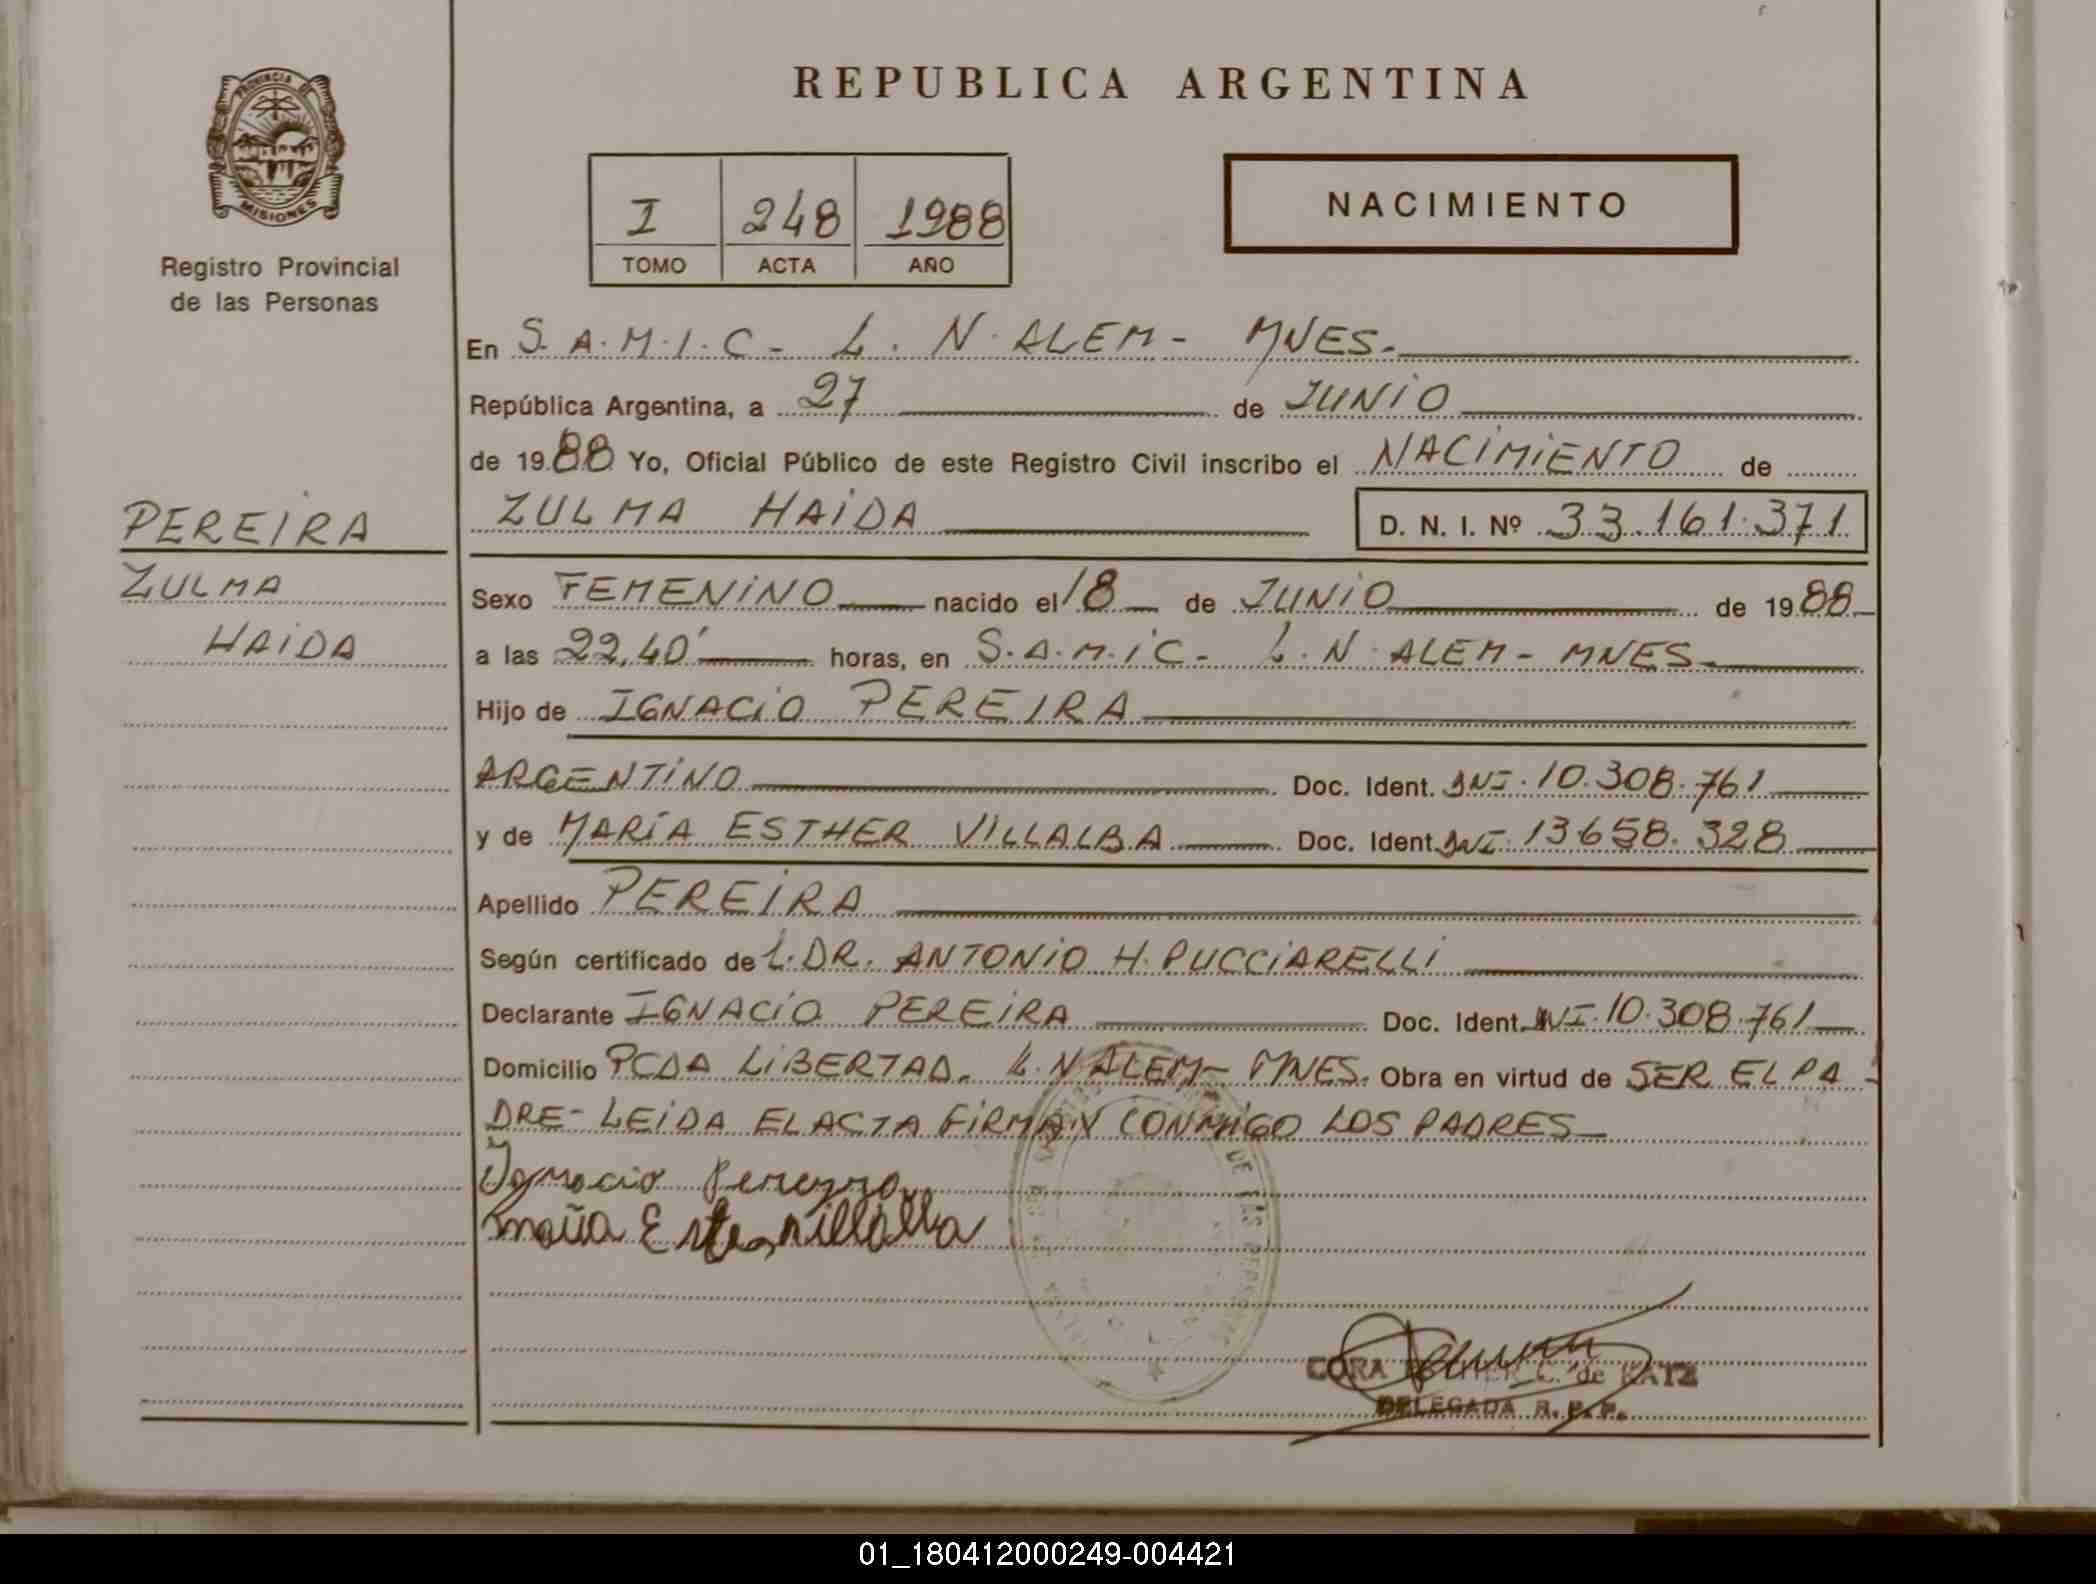 PROVINCIA DE
MISIONES
Registro Provincial
de las Personas
REPUBLICA ARGENTINA
I 248 1988
TOMO ACTA AÑO
NACIMIENTO
En S.A.M.I.C- L.N.ALEM- MNES.
República Argentina, a 27 de JUNIO
de 1988 Yo, Oficial Público de este Registro Civil inscribo el NACIMIENTO de
ZULMA HAIDA D. N. I. Nº 33.161.371
PEREIRA
ZULMA
HAIDA
Sexo FEMENINO nacido el 18 de JUNIO de 1988
a las 22,40' horas, en S.A.M.I.C- L.N.ALEM- MNES-
Hijo de IGNACIO PEREIRA
ARGENTINO Doc. Ident. DNI.10.308.761
y de MARÍA ESTHER VILLALBA Doc. Ident. DNI.13.658.328
Apellido PEREIRA
Según certificado del.DR. ANTONIO H.PUCCIARELLI
Declarante IGNACIO PEREIRA Doc. Ident. DNI.10.308.761
Domicilio PCDA LIBERTAD. L.N ALEM- MNES. Obra en virtud de SER EL PA-
DRE- LEIDA EL ACTA FIRMAN CONMIGO LOS PADRES-
Ignacio Pereyra
maria Ester villalba
DE LAS PERSONAS
CORA C. de KATZ
DELEGADA R. P. P.
01_180412000249-004421